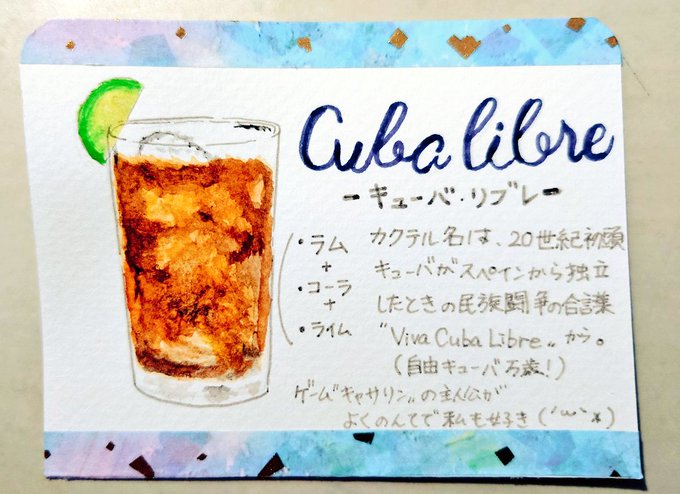 Cuba libre
-キューバ・リブレ-
・ラム
+
・コーラ
+
・ライム
カクテル名は、20世紀初頭
キューバがスペインから独立
したときの民族闘争の合言葉
"Viva Cuba Libre„から。
(自由キューバ万歳!)
ゲーム"キャサリン„の主人公が
よくのんでて私も好き(´ω`*)